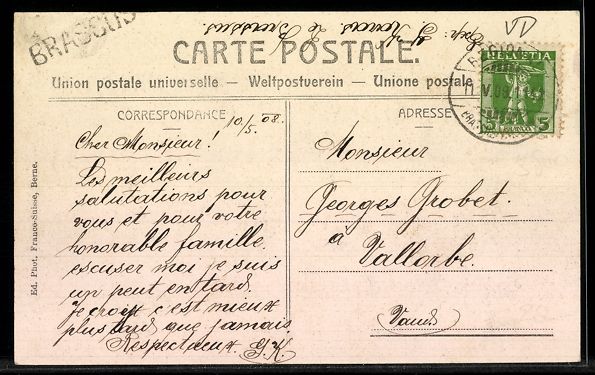 BRASSUS
Exp: G. K le Brassus.
CARTE POSTALE.
Union postale universelle – Weltpostverein – Unione postale
HELVETIA
5
CORRESPONDANCE
ADRESSE
10/5. 08.
Cher Monsieur!
Les meilleurs
salutations pour
vous et pour votre
honorable famille.
escuser moi je suis
un peut en tard.
je croix c'est mieux
plus tard que jamais.
Respectueux. G. K.
Monsieur
Georges Grobet.
à
Vallorbe.
(Vaud)
Ed. Phot. Franco-Suisse, Berne.